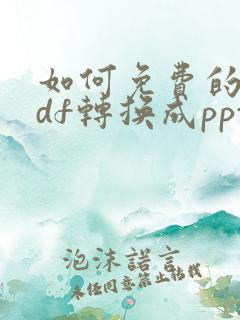 如何免費的
df轉換成pp
泡沫諾言
未任同意禁止转载